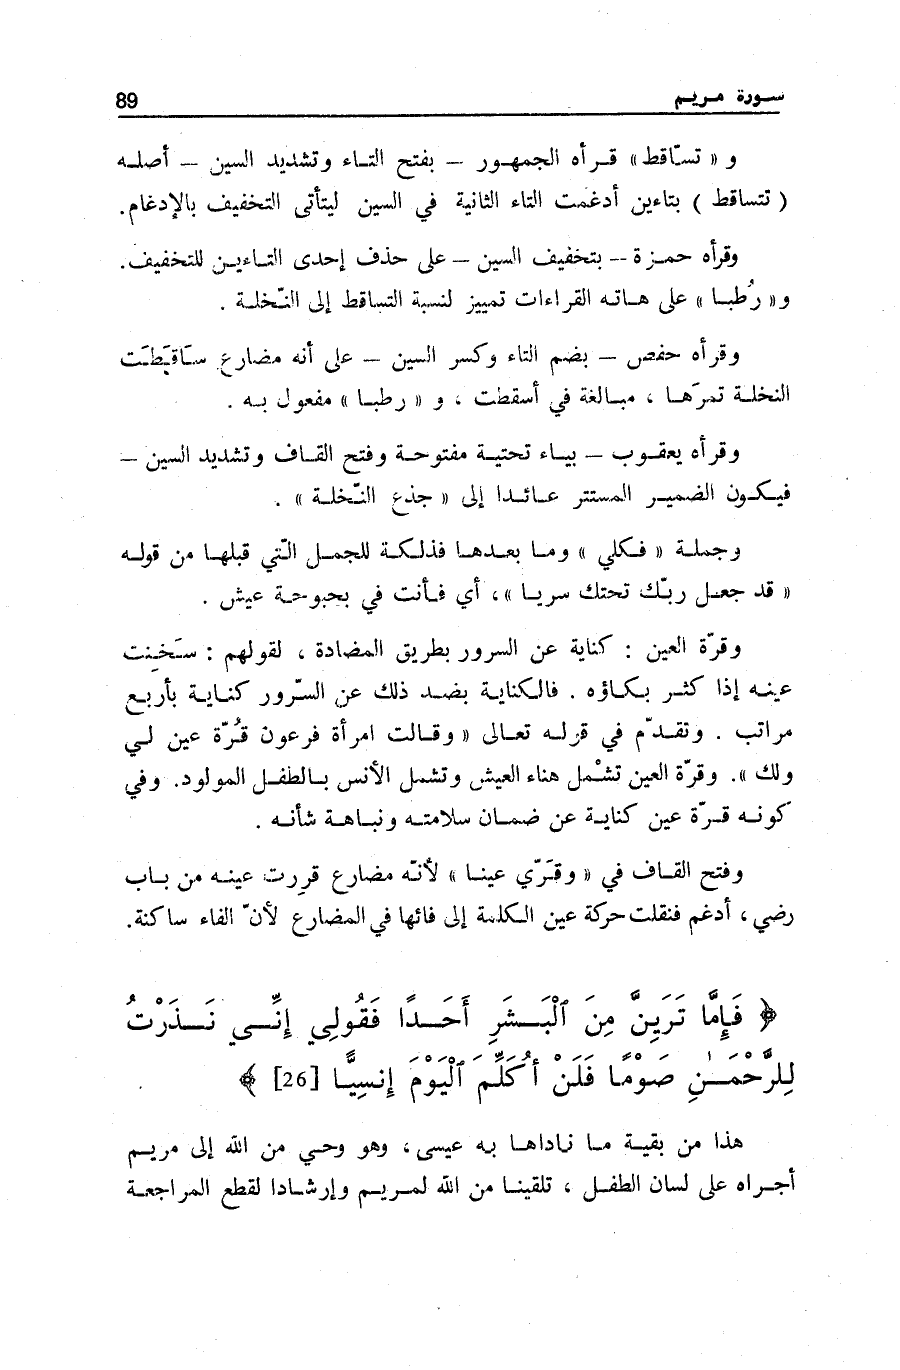 سورة مريم
89
و « تسّاقط » قرأه الجمهور – بفتح التاء وتشديد السين – أصله
( تتساقط ) بتاءين أدغمت التاء الثانية في السين ليتأتى التخفيف بالإدغام.
وقرأه حمزة – بتخفيف السين – على حذف إحدى التاءين للتخفيف.
و« رُطبا » على هاته القراءات تمييز لنسبة التساقط إلى النّخلة .
وقرأه حفص – بضم التاء وكسر السين – على أنه مضارع سَاقَطَت
النخلة تمرَها ، مبالغة في أسقطت ، و « رطبا » مفعول به .
وقرأه يعقوب – بياء تحتية مفتوحة وفتح القاف وتشديد السين –
فيكون الضمير المستتر عائدا إلى « جذع النّخلة » .
وجملة « فكلي » وما بعدها فذلكة للجمل الّتي قبلها من قوله
« قد جعل ربّك تحتك سريا »، أي فأنت في بحبوحة عيش .
وقرّة العين : كناية عن السرور بطريق المضادة ، لقولهم : سَخِنت
عينه إذا كثر بكاؤه . فالكناية بضد ذلك عن السّرور كناية بأربع
مراتب . وتقدّم في قوله تعالى « وقالت امرأة فرعون قُرّة عين لي
ولك ». وقرّة العين تشْمل هناء العيش وتشمل الأنس بالطفل المولود. وفي
كونه قرّة عين كناية عن ضمان سلامته ونباهة شأنه .
وفتح القاف في « وقَرّي عينا » لأنّه مضارع قررت عينه من باب
رضي، أدغم فنقلت حركة عين الكلمة إلى فائها في المضارع لأنّ الفاء ساكنة.
﴿ فَإِمَّا تَرَيِنَّ مِنَ ٱلْبَشَرِ أَحَدًا فَقُولِي إِنِّي نَذَرْتُ
لِلرَّحْمَـٰنِ صَوْمًا فَلَنْ أُكَلِّمَ ٱلْيَوْمَ إِنسِيًّا [26] ﴾
هذا من بقية ما ناداها به عيسى، وهو وحي من الله إلى مريم
أجراه على لسان الطفل ، تلقينا من الله لمريم وإرشادا لقطع المراجعة